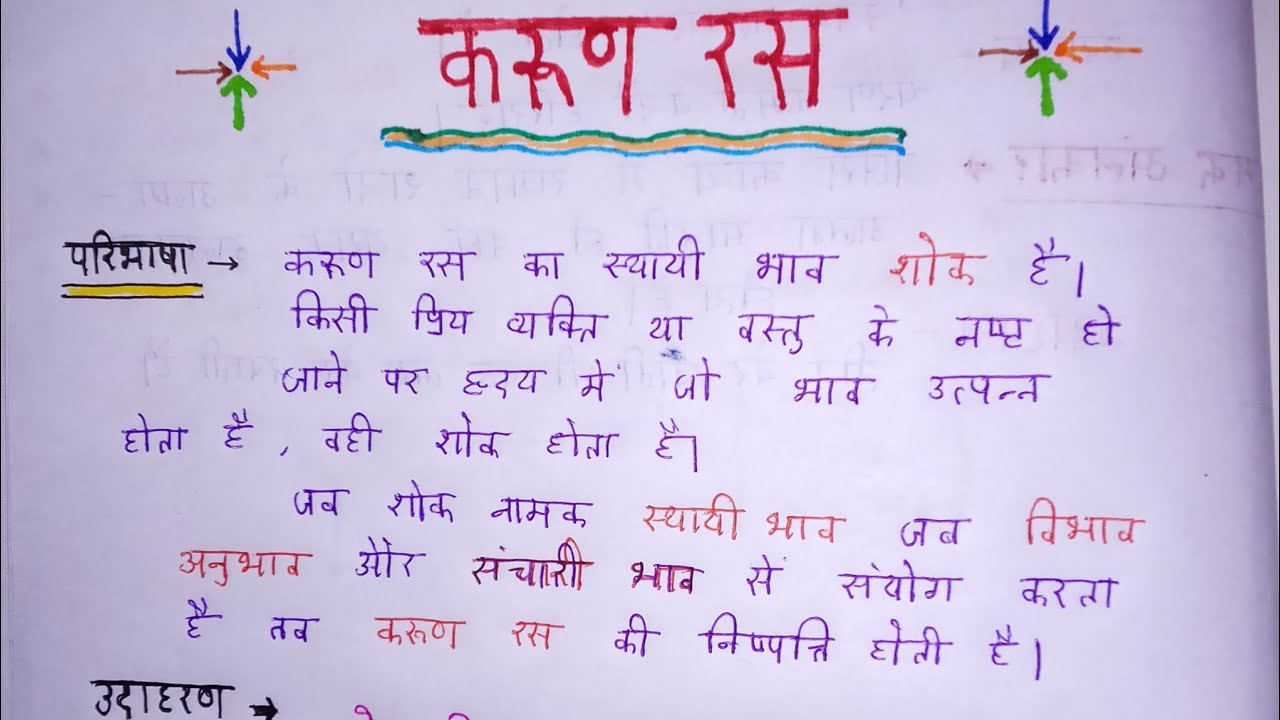 करूण रस
परिभाषा → करूण रस का स्थायी भाव शोक है।
किसी प्रिय व्यक्ति या वस्तु के नष्ट हो
जाने पर हृदय में जो भाव उत्पन्न
होता है, वही शोक होता है।
जब शोक नामक स्थायी भाव जब विभाव
अनुभाव और संचारी भाव से संयोग करता
है तब करूण रस की निष्पत्ति होती है।
उदाहरण →